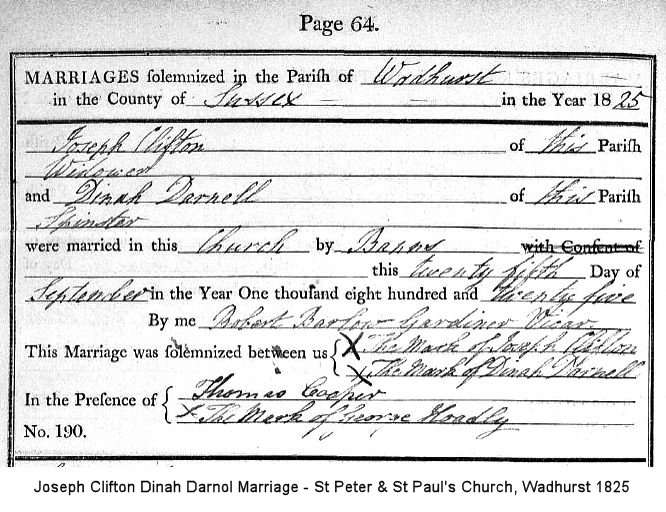 Page 64.
MARRIAGES ſolemnized in the Pariſh of Wadhurst
in the County of Sussex — in the Year 1825
Joseph Clifton of this Pariſh
Widower
and Dinah Darnell of this Pariſh
Spinster
were married in this Church by Banns with Conſent of
this twenty fifth Day of
September in the Year One thouſand eight hundred and twenty five
By me Robert Barlow Gardiner Vicar
This Marriage was ſolemnized between us { X The Mark of Joseph Clifton
X The Mark of Dinah Darnell
In the Preſence of { Thomas Cooper
X The Mark of George Hoadly
No. 190.
Joseph Clifton Dinah Darnol Marriage - St Peter & St Paul's Church, Wadhurst 1825